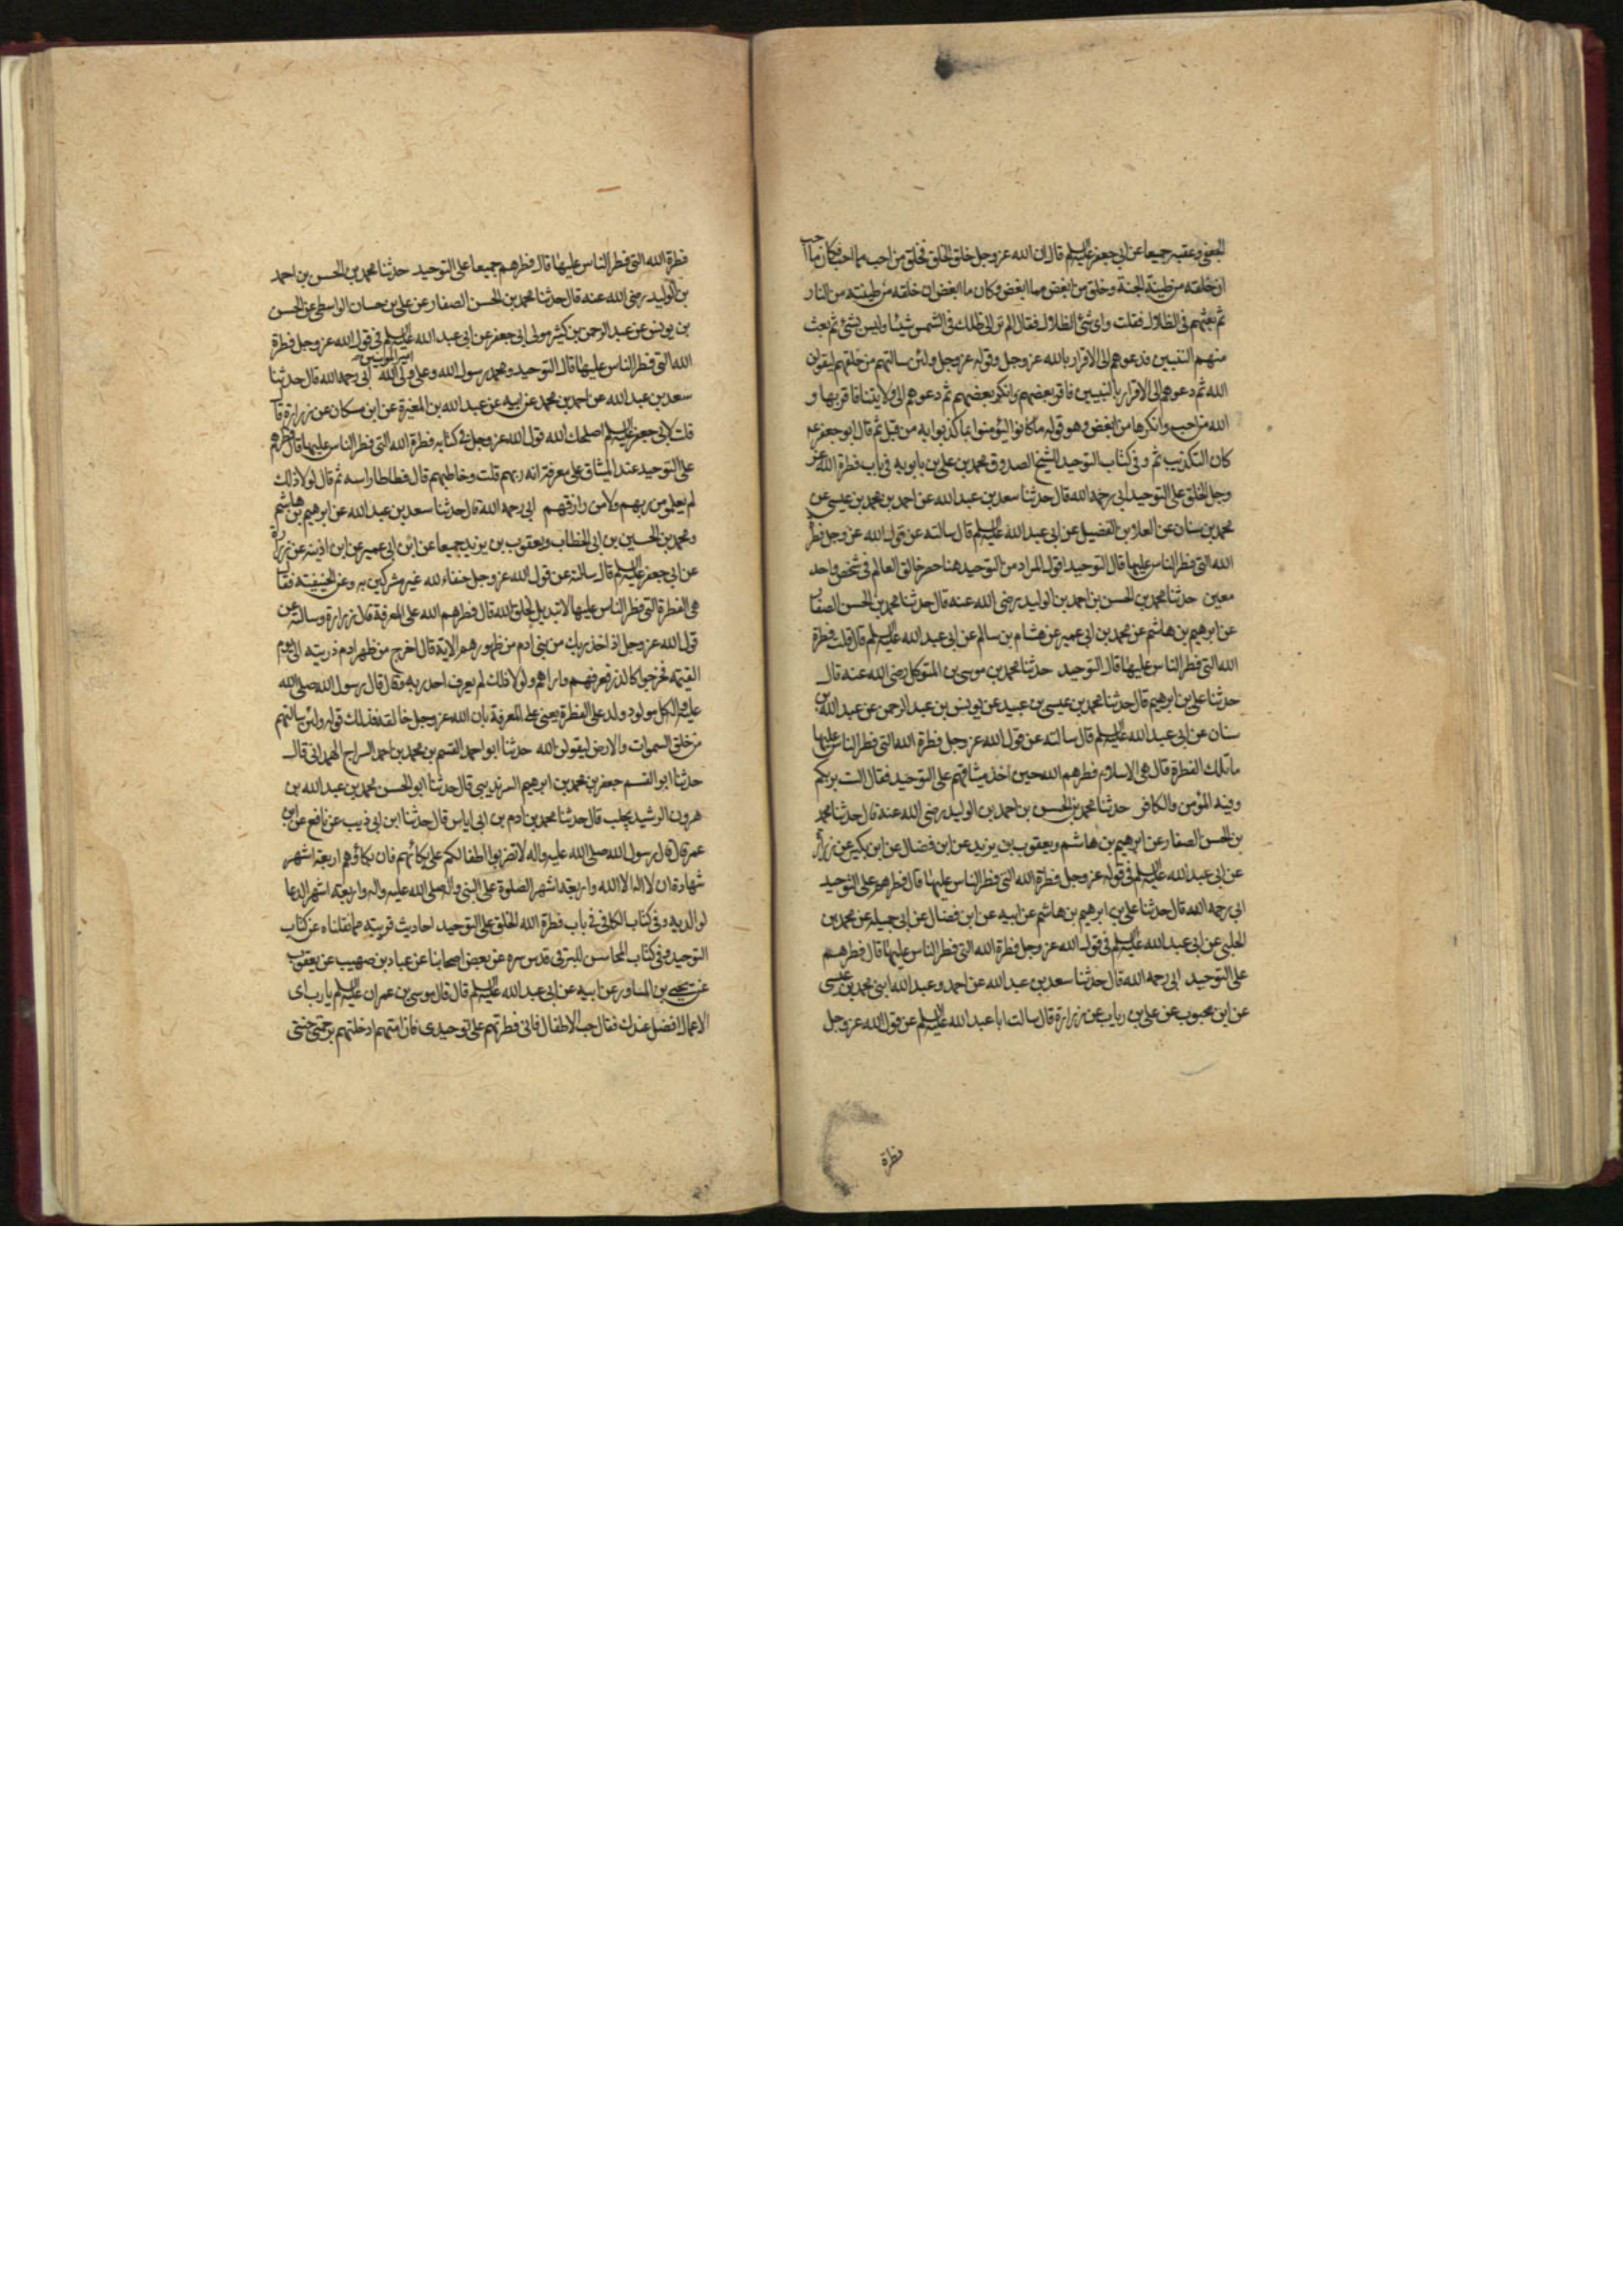 الجعفي وعقبه جميعا عن ابي جعفر عليه السلم قال ان الله عز وجل خلق الخلق فخلق من احبه مما احب فكان ما احب
ان خلقه من طينة الجنة وخلق من ابغض مما ابغض وكان ما ابغض ان خلقه من طينته من النار
ثم بعثهم في الظلال فقلت واي شئ الظلال فقال الم تر الى ظلك في الشمس شيئا وليس بشئ ثم بعث
منهم النبيين فدعوهم الى الاقرار بالله عز وجل وقوله عز وجل ولئن سالتهم من خلقهم ليقولن
الله ثم دعوهم الى الاقرار بالنبيين فاقر بعضهم وانكر بعضهم ثم دعوهم الى ولايتنا فاقر بها و
الله من احب وانكرها من ابغض وهو قوله ما كانوا ليؤمنوا بما كذبوا به من قبل ثم قال ابو جعفر عم
كان التكذيب ثم وفي كتاب التوحيد للشيخ الصدوق محمد بن علي بن بابويه في باب فطرة الله عز
وجل الخلق على التوحيد ابي رحمه الله قال حدثنا سعد بن عبد الله عن احمد بن محمد بن عيسى عن
محمد بن سنان عن العلا بن الفضيل عن ابي عبد الله عليه السلم قال سالته عن قول الله عز وجل فطرة
الله التي فطر الناس عليها قال التوحيد اقول المراد من التوحيد هنا حصر خالق العالم في شخص واحد
معين حدثنا محمد بن الحسن بن احمد بن الوليد رضي الله عنه قال حدثنا محمد بن الحسن الصفار
عن ابرهيم بن هاشم عن محمد بن ابي عمير عن هشام بن سالم عن ابي عبد الله عليه السلم قال قلت فطرة
الله التي فطر الناس عليها قال التوحيد حدثنا محمد بن موسى بن المتوكل رضي الله عنه قال
حدثنا علي بن ابرهيم قال حدثنا محمد بن عيسى بن عبيد عن يونس بن عبد الرحمن عن عبد الله بن
سنان عن ابي عبد الله عليه السلم قال سالته عن قول الله عز وجل فطرة الله التي فطر الناس عليها
ما تلك الفطرة قال هي الاسلام فطرهم الله حين اخذ ميثاقهم على التوحيد فقال الست بربكم
وفيه المؤمن والكافر حدثنا محمد بن الحسن بن احمد بن الوليد رضي الله عنه قال حدثنا محمد
بن الحسن الصفار عن ابرهيم بن هاشم ويعقوب بن يزيد عن ابن فضال عن ابن بكير عن زرارة
عن ابي عبد الله عليه السلم في قوله عز وجل فطرة الله التي فطر الناس عليها قال فطرهم على التوحيد
ابي رحمه الله قال حدثنا علي بن ابرهيم بن هاشم عن ابيه عن ابن فضال عن ابي جميله عن محمد بن
الحلبي عن ابي عبد الله عليه السلم في قول الله عز وجل فطرة الله التي فطر الناس عليها قال فطرهم
على التوحيد ابي رحمه الله قال حدثنا سعد بن عبد الله عن احمد وعبد الله ابني محمد بن عيسى
عن ابن محبوب عن علي بن رياب عن زرارة قال سالت ابا عبد الله عليه السلم عن قول الله عز وجل
فطرة
فطرة الله التي فطر الناس عليها قال فطرهم جميعا على التوحيد حدثنا محمد بن الحسن بن احمد
بن الوليد رضي الله عنه قال حدثنا محمد بن الحسن الصفار عن علي بن حسان الواسطي عن الحسن
بن يونس عن عبد الرحمن بن كثير مولى ابي جعفر عن ابي عبد الله عليه السلم في قول الله عز وجل فطرة
الله التي فطر الناس عليها قال التوحيد ومحمد رسول الله وعلي امير المؤمنين ولي الله ابي رحمه الله قال حدثنا
سعد بن عبد الله عن احمد بن محمد عن ابيه عن عبد الله بن المغيرة عن ابن مسكان عن زرارة قال
قلت لابي جعفر عليه السلم اصلحك الله قول الله عز وجل في كتابه فطرة الله التي فطر الناس عليها قال فطرهم
على التوحيد عند الميثاق على معرفته انه ربهم قلت وخاطبهم قال فطاطا راسه ثم قال لولا ذلك
لم يعلموا من ربهم ولا من رازقهم ابي رحمه الله قال حدثنا سعد بن عبد الله عن ابرهيم بن هاشم
ومحمد بن الحسين بن ابي الخطاب ويعقوب بن يزيد جميعا عن ابن ابي عمير عن ابن اذينه عن زرارة
عن ابي جعفر عليه السلم قال سالته عن قول الله عز وجل حنفاء لله غير مشركين به وعن الحنيفيته فقال
هي الفطرة التي فطر الناس عليها لا تبديل لخلق الله قال فطرهم الله على المعرفة قال زرارة وسالته عن
قول الله عز وجل اذ اخذ ربك من بني ادم من ظهورهم الاية قال اخرج من ظهر ادم ذريته الى يوم
القيمه فخرجوا كالذر فعرفهم واراهم ولولا ذلك لم يعرف احد ربه وقال قال رسول الله صلى الله
عليه واله كل مولود يولد على الفطرة يعني على المعرفة بان الله عز وجل خالقه فذلك قوله ولئن سالتهم
من خلق السموات والارض ليقولن الله حدثنا ابو احمد القسم بن محمد بن احمد السراج الهمداني قال
حدثنا ابو القسم جعفر بن محمد بن ابرهيم السرنديبي قال حدثنا ابو الحسن محمد بن عبد الله بن
هرون الرشيد بحلب قال حدثنا محمد بن ادم بن ابي اياس قال حدثنا ابن ابي ذيب عن نافع عن ابن
عمر قال قال رسول الله صلى الله عليه واله لا تضربوا اطفالكم على بكائهم فان بكاؤهم اربعة اشهر
شهادة ان لا اله الا الله واربعة اشهر الصلوة على النبي واله صلى الله عليه واله واربعة اشهر الدعا
لوالديه وفي كتاب الكافي في باب فطرة الله الخلق على التوحيد احاديث قريبة مما نقلناه عن كتاب
التوحيد وفي كتاب المحاسن للبرقي قدس سره عن بعض اصحابنا عن عباد بن صهيب عن يعقوب
عن يحيى بن المساور عن ابيه عن ابي عبد الله عليه السلم قال قال موسى بن عمران عليه السلم يا رب اي
الاعمال افضل عندك فقال حب الاطفال فاني فطرتهم على توحيدي فان امتهم ادخلتهم برحمتي جنتي